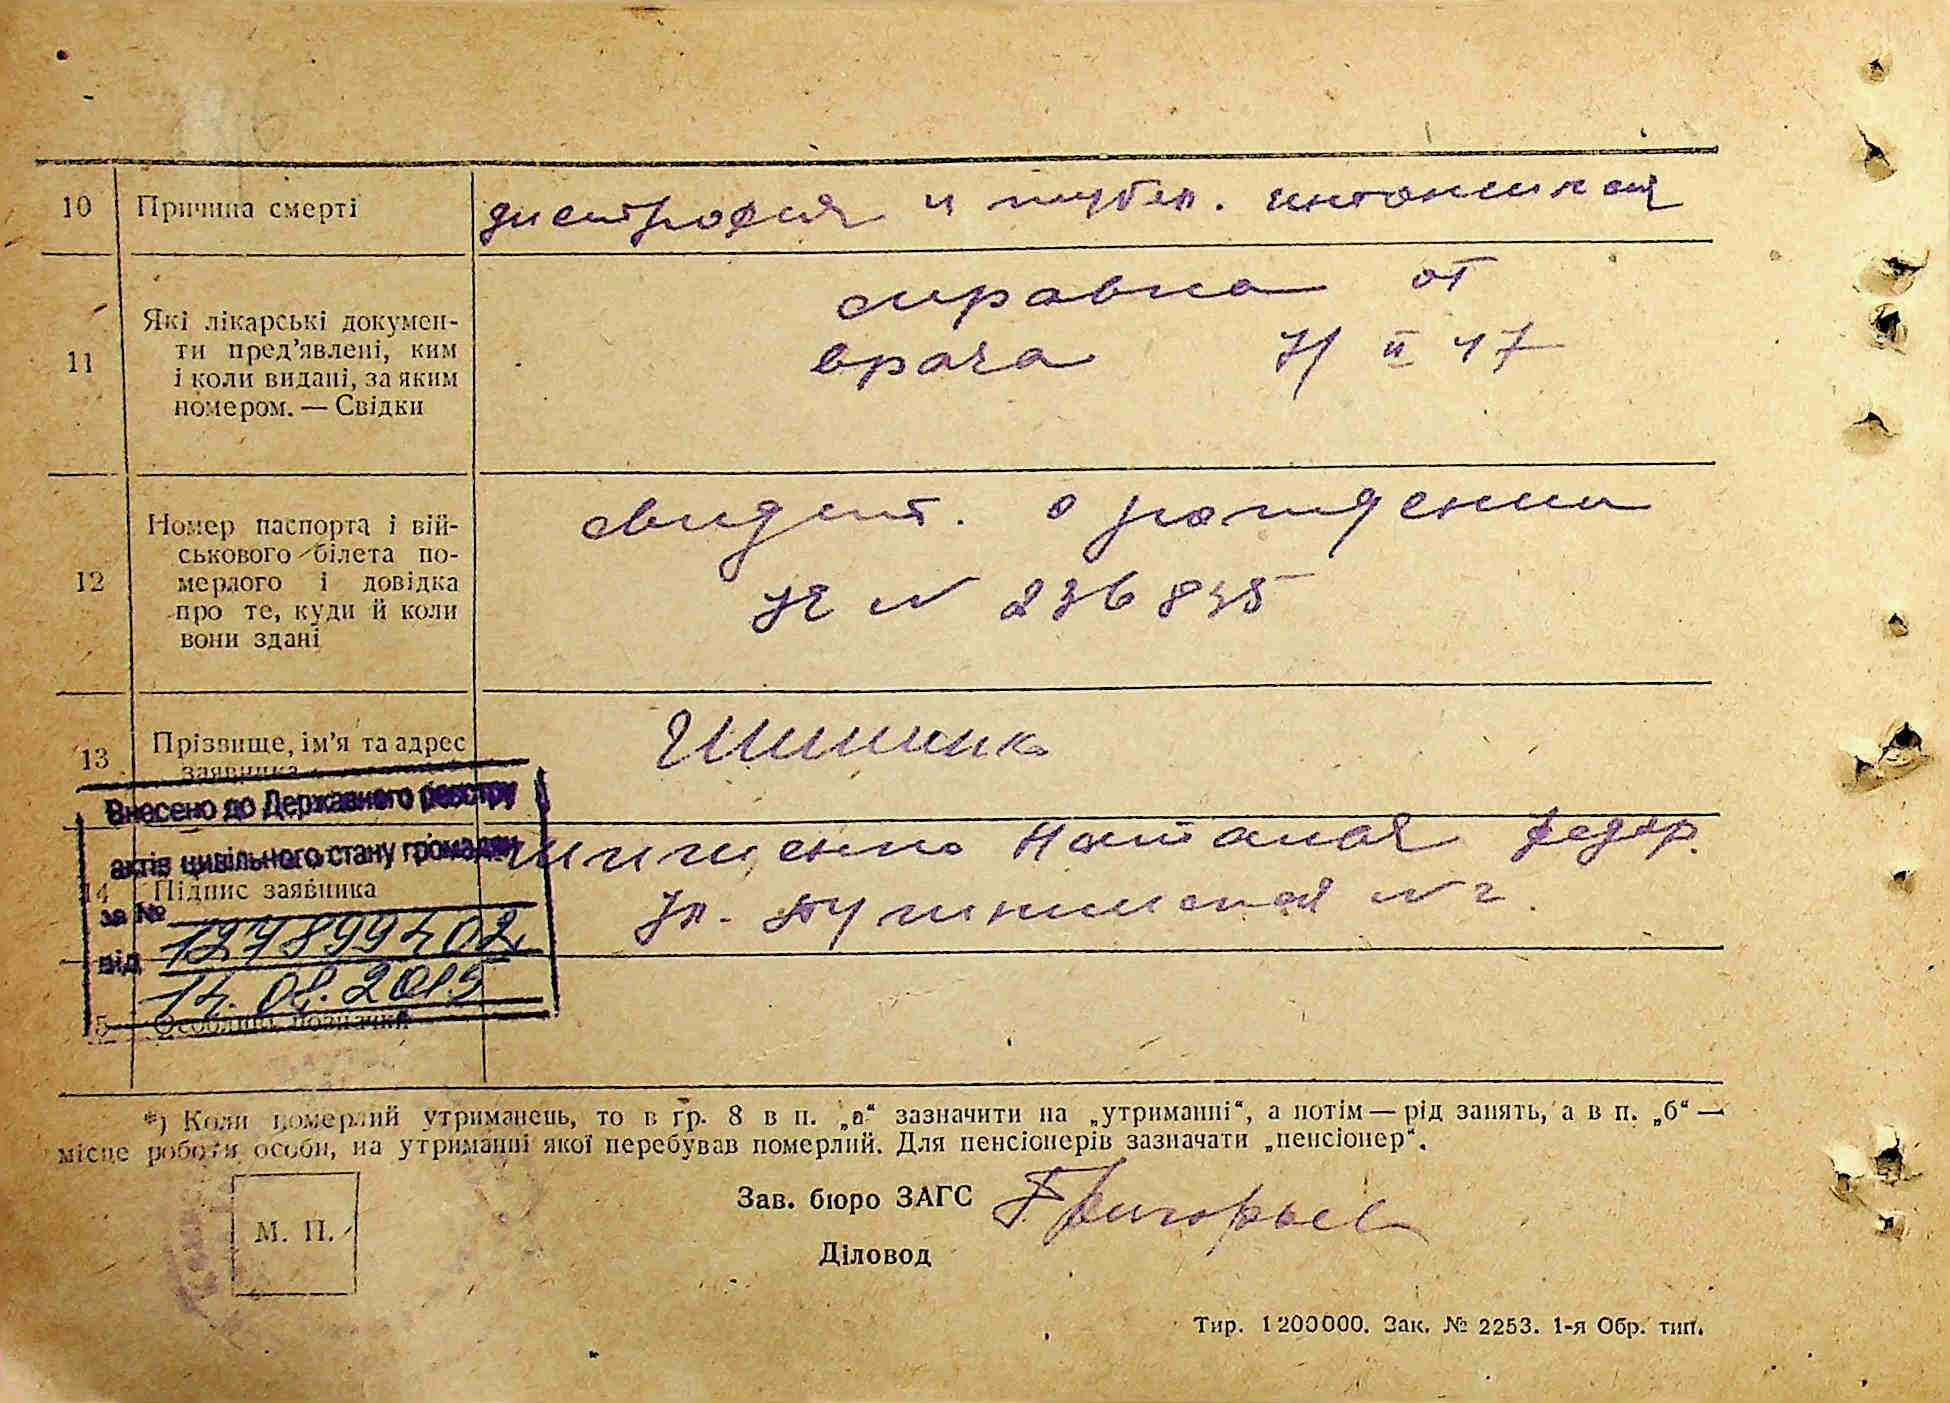 10 Причина смерті дистрофия и тубер. интоксикация
11 Які лікарські докумен-
ти пред'явлені, ким
і коли видані, за яким
номером. — Свідки
справка от
врача II 47
12 Номер паспорта і вій-
ськового білета по-
мерлого і довідка
про те, куди й коли
вони здані
свидет. о рождении
№ 236835
13 Прізвище, ім'я та адрес
заявника
Внесено до Державного реєстру
актів цивільного стану громадян
Наталья Федор.
14 Підпис заявника
за №
ул. Пушкинская № 2.
від
14.01.2015
15 Особливі позначки
*) Коли померлий утриманець, то в гр. 8 в п. „а“ зазначити на „утриманні“, а потім — рід занять, а в п. „б“ —
місце роботи особи, на утриманні якої перебував померлий. Для пенсіонерів зазначати „пенсіонер“.
Зав. бюро ЗАГС Григорьев
М. П.
Діловод
Тир. 1200000. Зак. № 2253. 1-я Обр. тип.